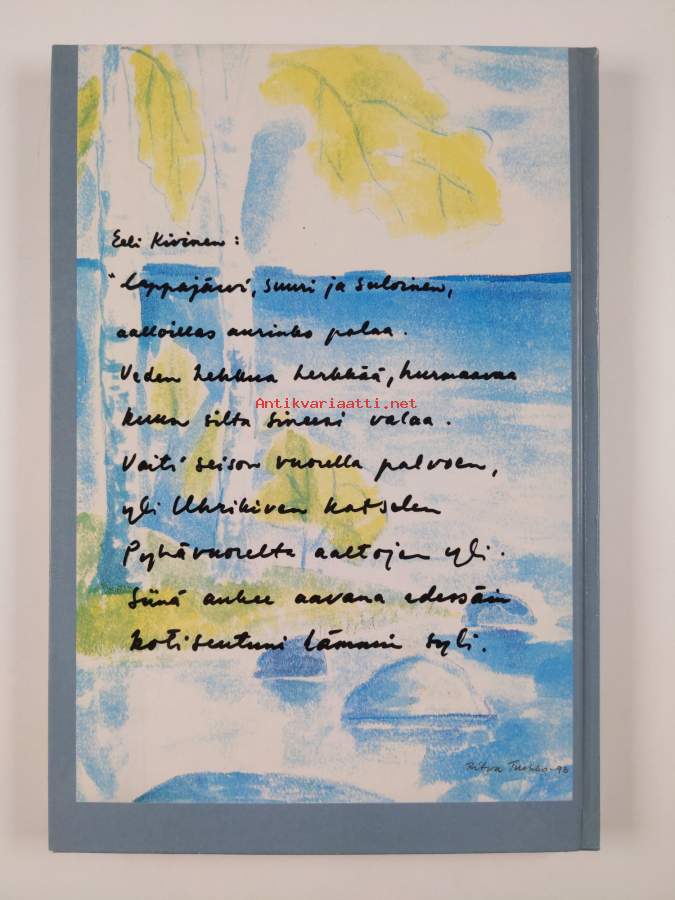 Eeli Kivinen:
"Lappajärvi, suuri ja suloinen,
aalloillas aurinko palaa.
Veden hehkua herkkää, hurmaavaa
Antikvariaatti.net
kuun silta sineesi valaa.
Vaiti seison vuorella palvoen,
yli Uhrikiven katselen
Pyhävuorelta aaltojen yli.
Siinä aukee aavana edessäin
kotiseutuni lämmin syli.
Ritva Tuokko -96